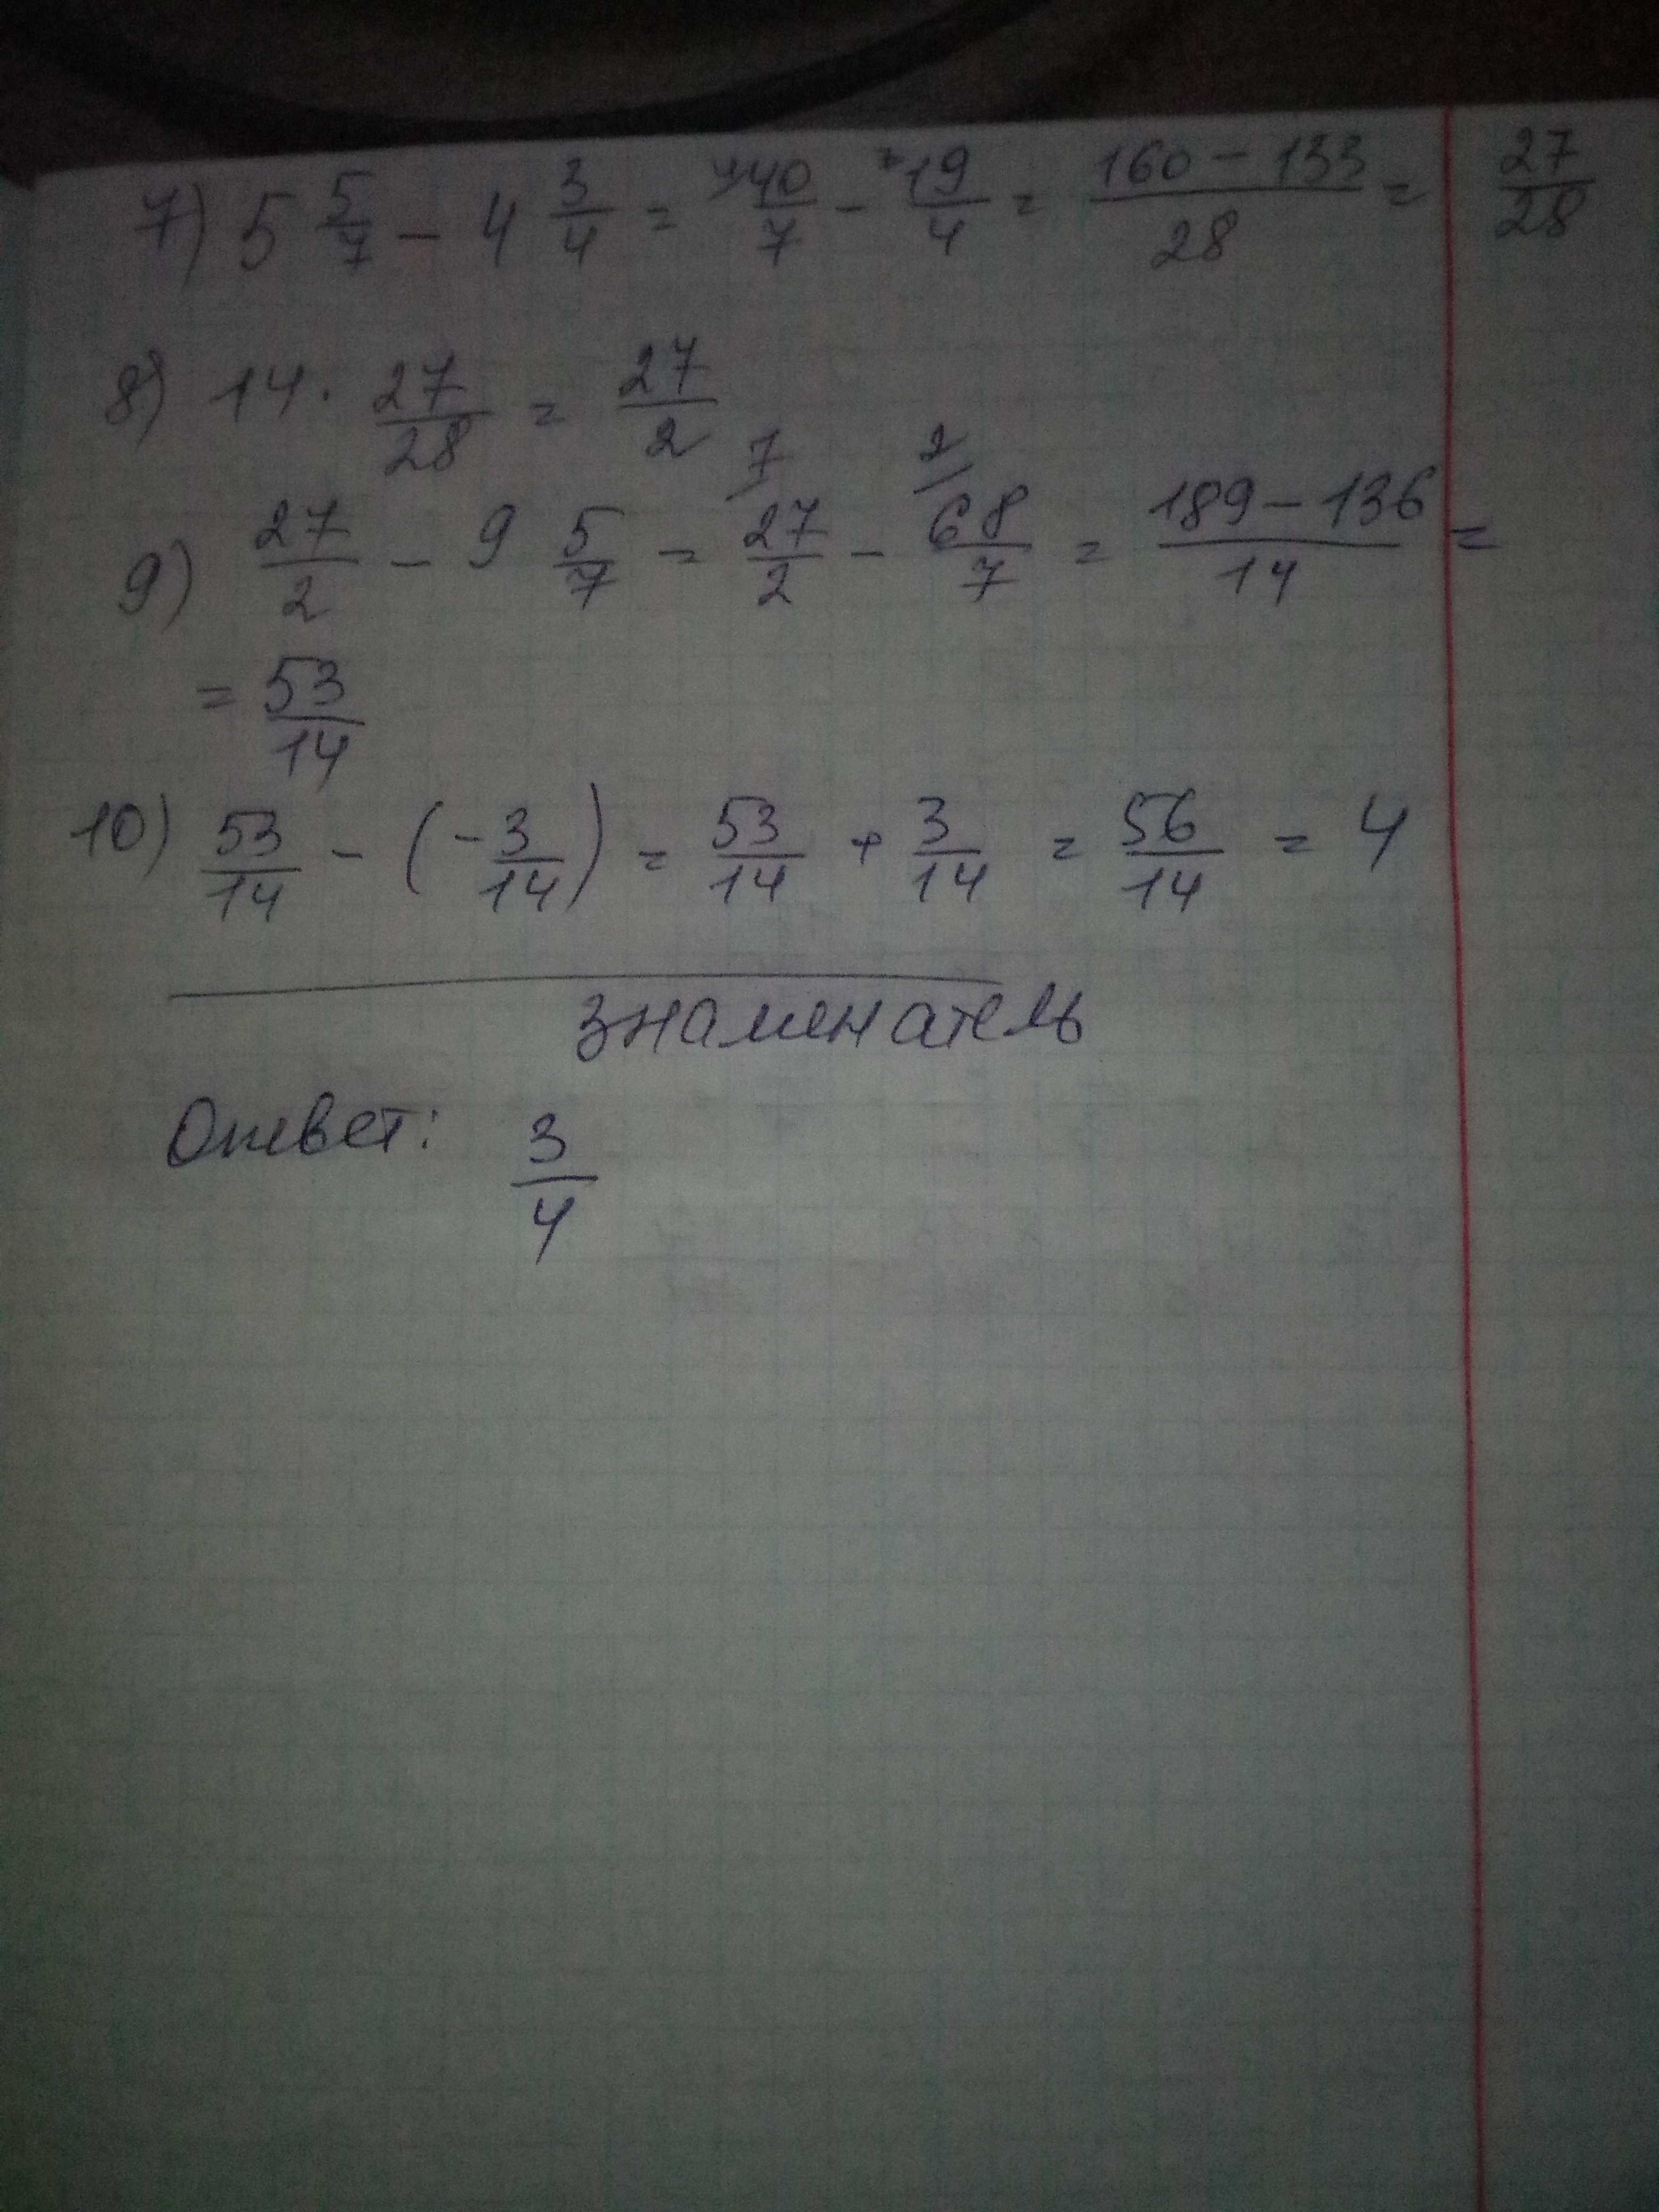 7) 5 5/7 - 4 3/4 = 4 40/7 - 7 19/4 = (160 - 133)/28 = 27/28
8) 14 · 27/28 = 27/2
9) 27/2 - 9 5/7 = 7/ 27/2 - 2/ 68/7 = (189 - 136)/14 =
= 53/14
10) 53/14 - (-3/14) = 53/14 + 3/14 = 56/14 = 4
знаменатель
Ответ: 3/4